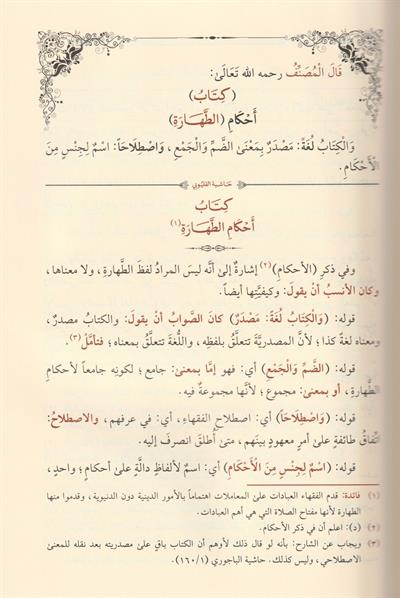 قَالَ الْمُصَنِّفُ رحمه الله تَعَالَىٰ:
(كِتَابُ)
أَحْكَامِ (الطَّهَارَةِ)
وَالْكِتَابُ لُغَةً: مَصْدَرٌ بِمَعْنَىٰ الضَّمِّ وَالْجَمْعِ، وَاصْطِلَاحَاً: اسْمٌ لِجِنْسٍ مِنَ
الْأَحْكَامِ.
حَاشية القليوبي
كِتَابُ
أَحْكَامِ الطَّهَارَةِ (١)
وفي ذكرِ (الأحكامِ) (٢) إشارةٌ إلىٰ أنَّه ليسَ المرادُ لفظَ الطَّهارةِ، ولا معناها،
وكان الأنسبُ أنْ يقولَ: وكيفيَّتِها أيضاً.
قوله: (وَالْكِتَابُ لُغَةً: مَصْدَرٌ) كانَ الصَّوابُ أنْ يقولَ: والكتابُ مصدرٌ،
ومعناه لغةً كذا؛ لأنَّ المصدريَّةَ تتعلَّقُ بلفظِه، واللُّغةَ تتعلَّقُ بمعناه؛ فتأمَّلْ (٣).
قوله: (الضَّمِّ وَالْجَمْعِ) أي: فهو إمَّا بمعنىٰ: جامع؛ لكونِه جامعاً لأحكامِ
الطَّهارةِ، أو بمعنىٰ: مجموع؛ لأنَّها مجموعةٌ فيه.
قوله: (وَاصْطِلَاحَاً) أي: اصطلاحِ الفقهاءِ، أي: في عرفِهم، والاصطلاحُ:
اتِّفاقُ طائفةٍ علىٰ أمرٍ معهودٍ بينَهم، متىٰ أُطلقَ انصرفَ إليه.
قوله: (اسْمٌ لِجِنْسٍ مِنَ الْأَحْكَامِ) أي: اسم لألفاظٍ دالَّةٍ علىٰ أحكامٍ؛ واحد،
(١) فائدة: قدم الفقهاء العبادات علىٰ المعاملات اهتماماً بالأمور الدينية دون الدنيوية، وقدموا منها
الطهارة لأنها مفتاح الصلاة التي هي أهم العبادات.
(٢) (د): اعلم أن في ذكر الأحكام.
(٣) ويجاب عن الشارح: بأنه لو قال ذلك لأوهم أن الكتاب باقٍ علىٰ مصدريته بعد نقله للمعنىٰ
الاصطلاحي، وليس كذلك. حاشية الباجوري (١/ ١٦٠).